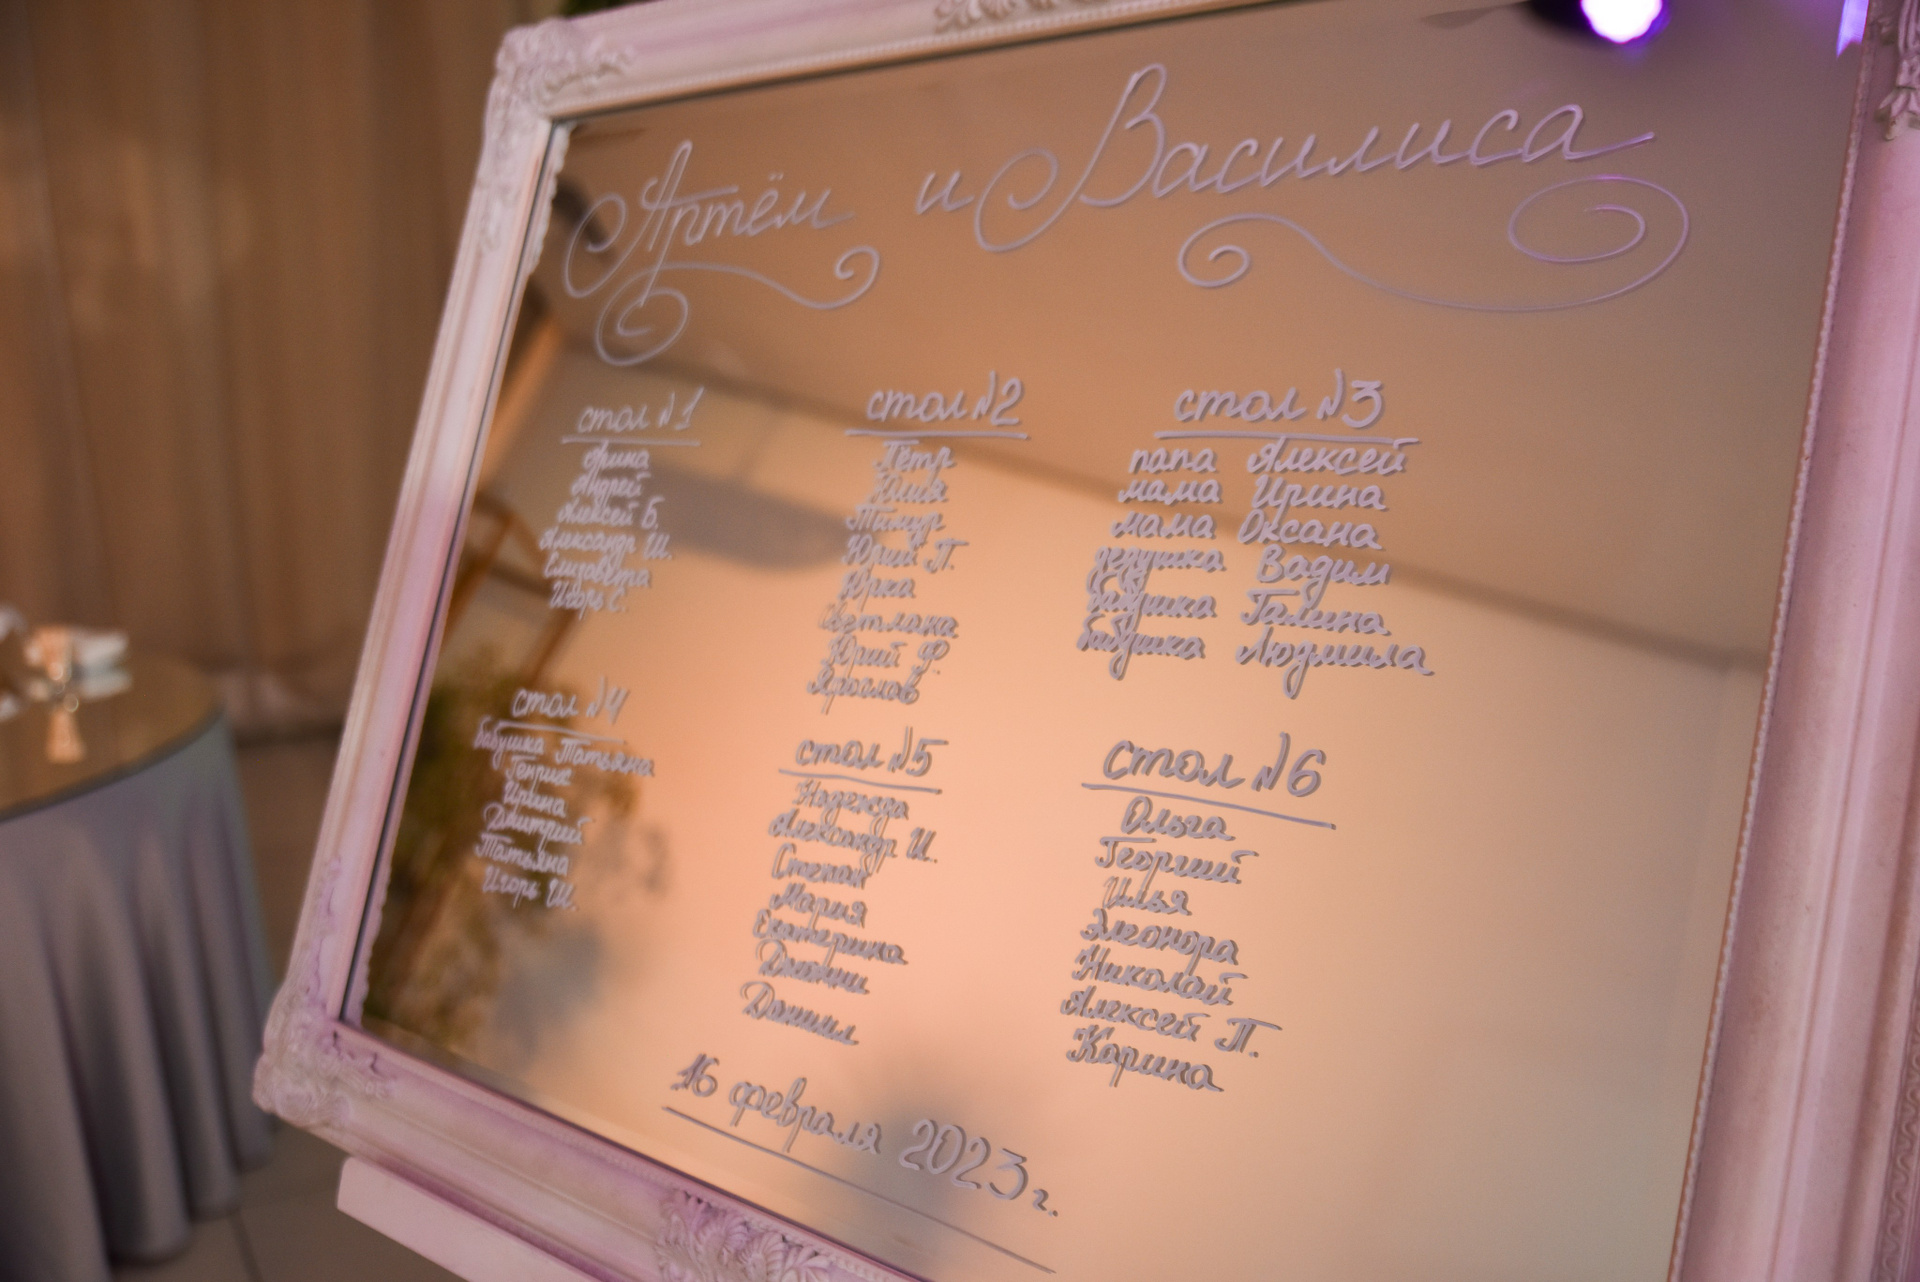 Артём и Василиса
стол №1
Арина
Андрей
Алексей Б.
Александр Ш.
Елизавета
Игорь С.
стол №2
Пётр
Юлия
Тимур
Юрий П.
Юрка
Светлана
Юрий Ф.
Ярослав
стол №3
папа Алексей
мама Ирина
мама Оксана
дедушка Вадим
бабушка Галина
бабушка Людмила
стол №4
бабушка Татьяна
Генрих
Ирина
Дмитрий
Татьяна
Игорь Ш.
стол №5
Надежда
Александр И.
Степан
Мария
Екатерина
Даниил
стол №6
Ольга
Георгий
Илья
Элеонора
Николай
Алексей П.
Карина
16 февраля 2023 г.